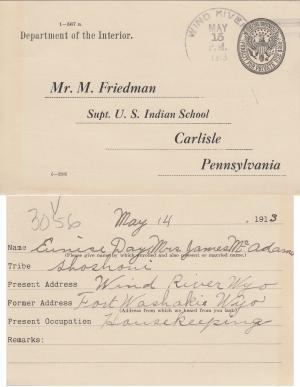 1—567 a.
Department of the Interior.
WIND RIVER
MAY
15
P.M.
1913
Mr. M. Friedman
Supt. U. S. Indian School
Carlisle
Pennsylvania
30 56
May 14, 1913
Name Eunise Day Mrs James McAdams
(Please give name by which enrolled and also present or married name.)
Tribe Shoshoni
Present Address Wind River Wyo
Former Address Fort Washakie Wyo
(Address from which we heard from you last)
Present Occupation Housekeeping
Remarks: